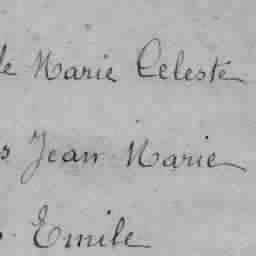 le Marie Celeste
s Jean Marie
Emile